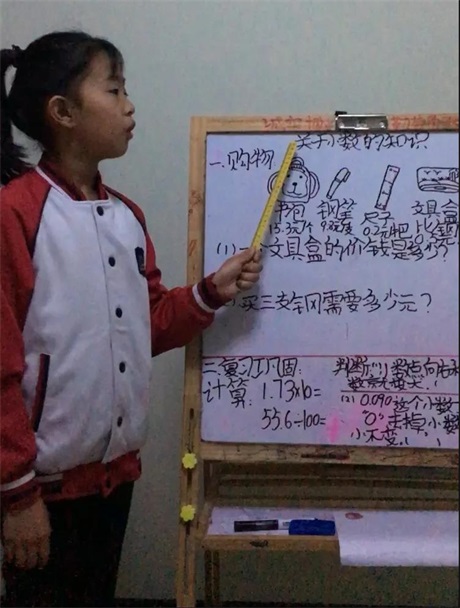 关于小数的知识
一.购物
书包 钢笔 尺子 文具盒
15.3元/个 9.2元/支 0.2元/把 比钢
(1)一个文具盒的价钱是多少?
买三支钢需要多少元?
二.复习巩固:
计算: 1.73×10=
55.6÷100=
判断:(1)
(2) 0.090这个小数
"0"去掉,小数
小不变.